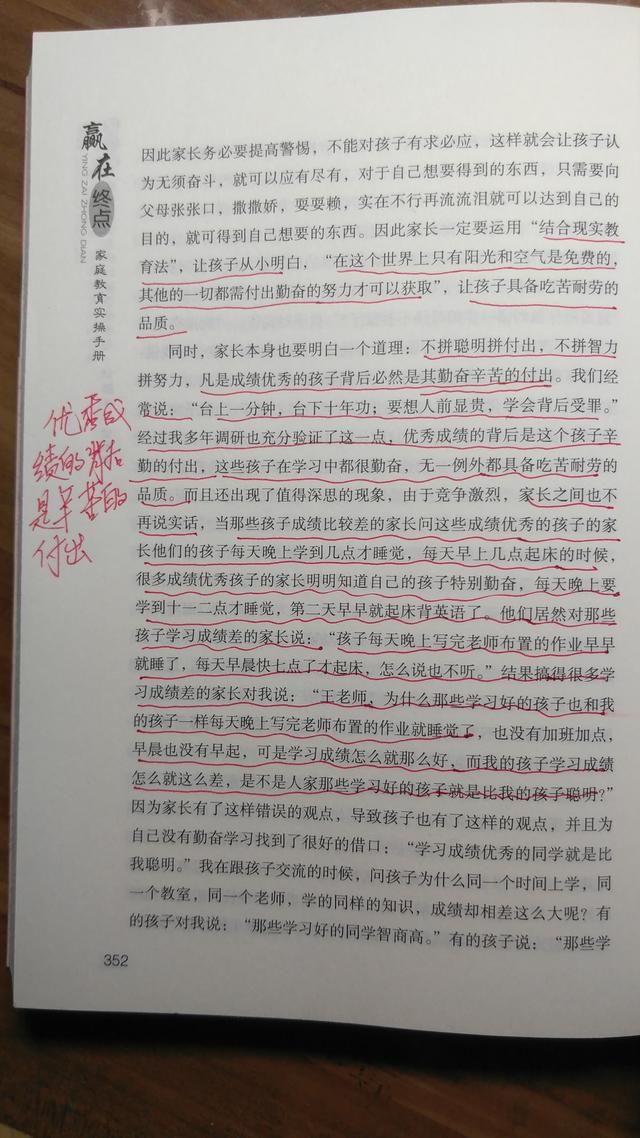 赢在终点
YING ZAI ZHONG DIAN
家庭教育实操手册
因此家长务必要提高警惕，不能对孩子有求必应，这样就会让孩子认
为无须奋斗，就可以应有尽有，对于自己想要得到的东西，只需要向
父母张张口，撒撒娇，耍耍赖，实在不行再流流泪就可以达到自己的
目的，就可得到自己想要的东西。因此家长一定要运用“结合现实教
育法”，让孩子从小明白，“在这个世界上只有阳光和空气是免费的，
其他的一切都需付出勤奋的努力才可以获取”，让孩子具备吃苦耐劳的
品质。
同时，家长本身也要明白一个道理：不拼聪明拼付出，不拼智力
拼努力，凡是成绩优秀的孩子背后必然是其勤奋辛苦的付出。我们经
常说：“台上一分钟，台下十年功；要想人前显贵，学会背后受罪。”
经过我多年调研也充分验证了这一点，优秀成绩的背后是这个孩子辛
勤的付出，这些孩子在学习中都很勤奋，无一例外都具备吃苦耐劳的
品质。而且还出现了值得深思的现象，由于竞争激烈，家长之间也不
再说实话，当那些孩子成绩比较差的家长问这些成绩优秀的孩子的家
长他们的孩子每天晚上学到几点才睡觉，每天早上几点起床的时候，
很多成绩优秀孩子的家长明明知道自己的孩子特别勤奋，每天晚上要
学到十一二点才睡觉，第二天早早就起床背英语了。他们居然对那些
孩子学习成绩差的家长说：“孩子每天晚上写完老师布置的作业早早
就睡了，每天早晨快七点了才起床，怎么说也不听。”结果搞得很多学
习成绩差的家长对我说：“王老师，为什么那些学习好的孩子也和我
的孩子一样每天晚上写完老师布置的作业就睡觉了，也没有加班加点，
早晨也没有早起，可是学习成绩怎么就那么好，而我的孩子学习成绩
怎么就这么差，是不是人家那些学习好的孩子就是比我的孩子聪明？”
因为家长有了这样错误的观点，导致孩子也有了这样的观点，并且为
自己没有勤奋学习找到了很好的借口：“学习成绩优秀的同学就是比
我聪明。”我在跟孩子交流的时候，问孩子为什么同一个时间上学，同
一个教室，同一个老师，学的同样的知识，成绩却相差这么大呢？有
的孩子对我说：“那些学习好的同学智商高。”有的孩子说：“那些学
优秀成
绩的背后
是辛苦的
付出
352